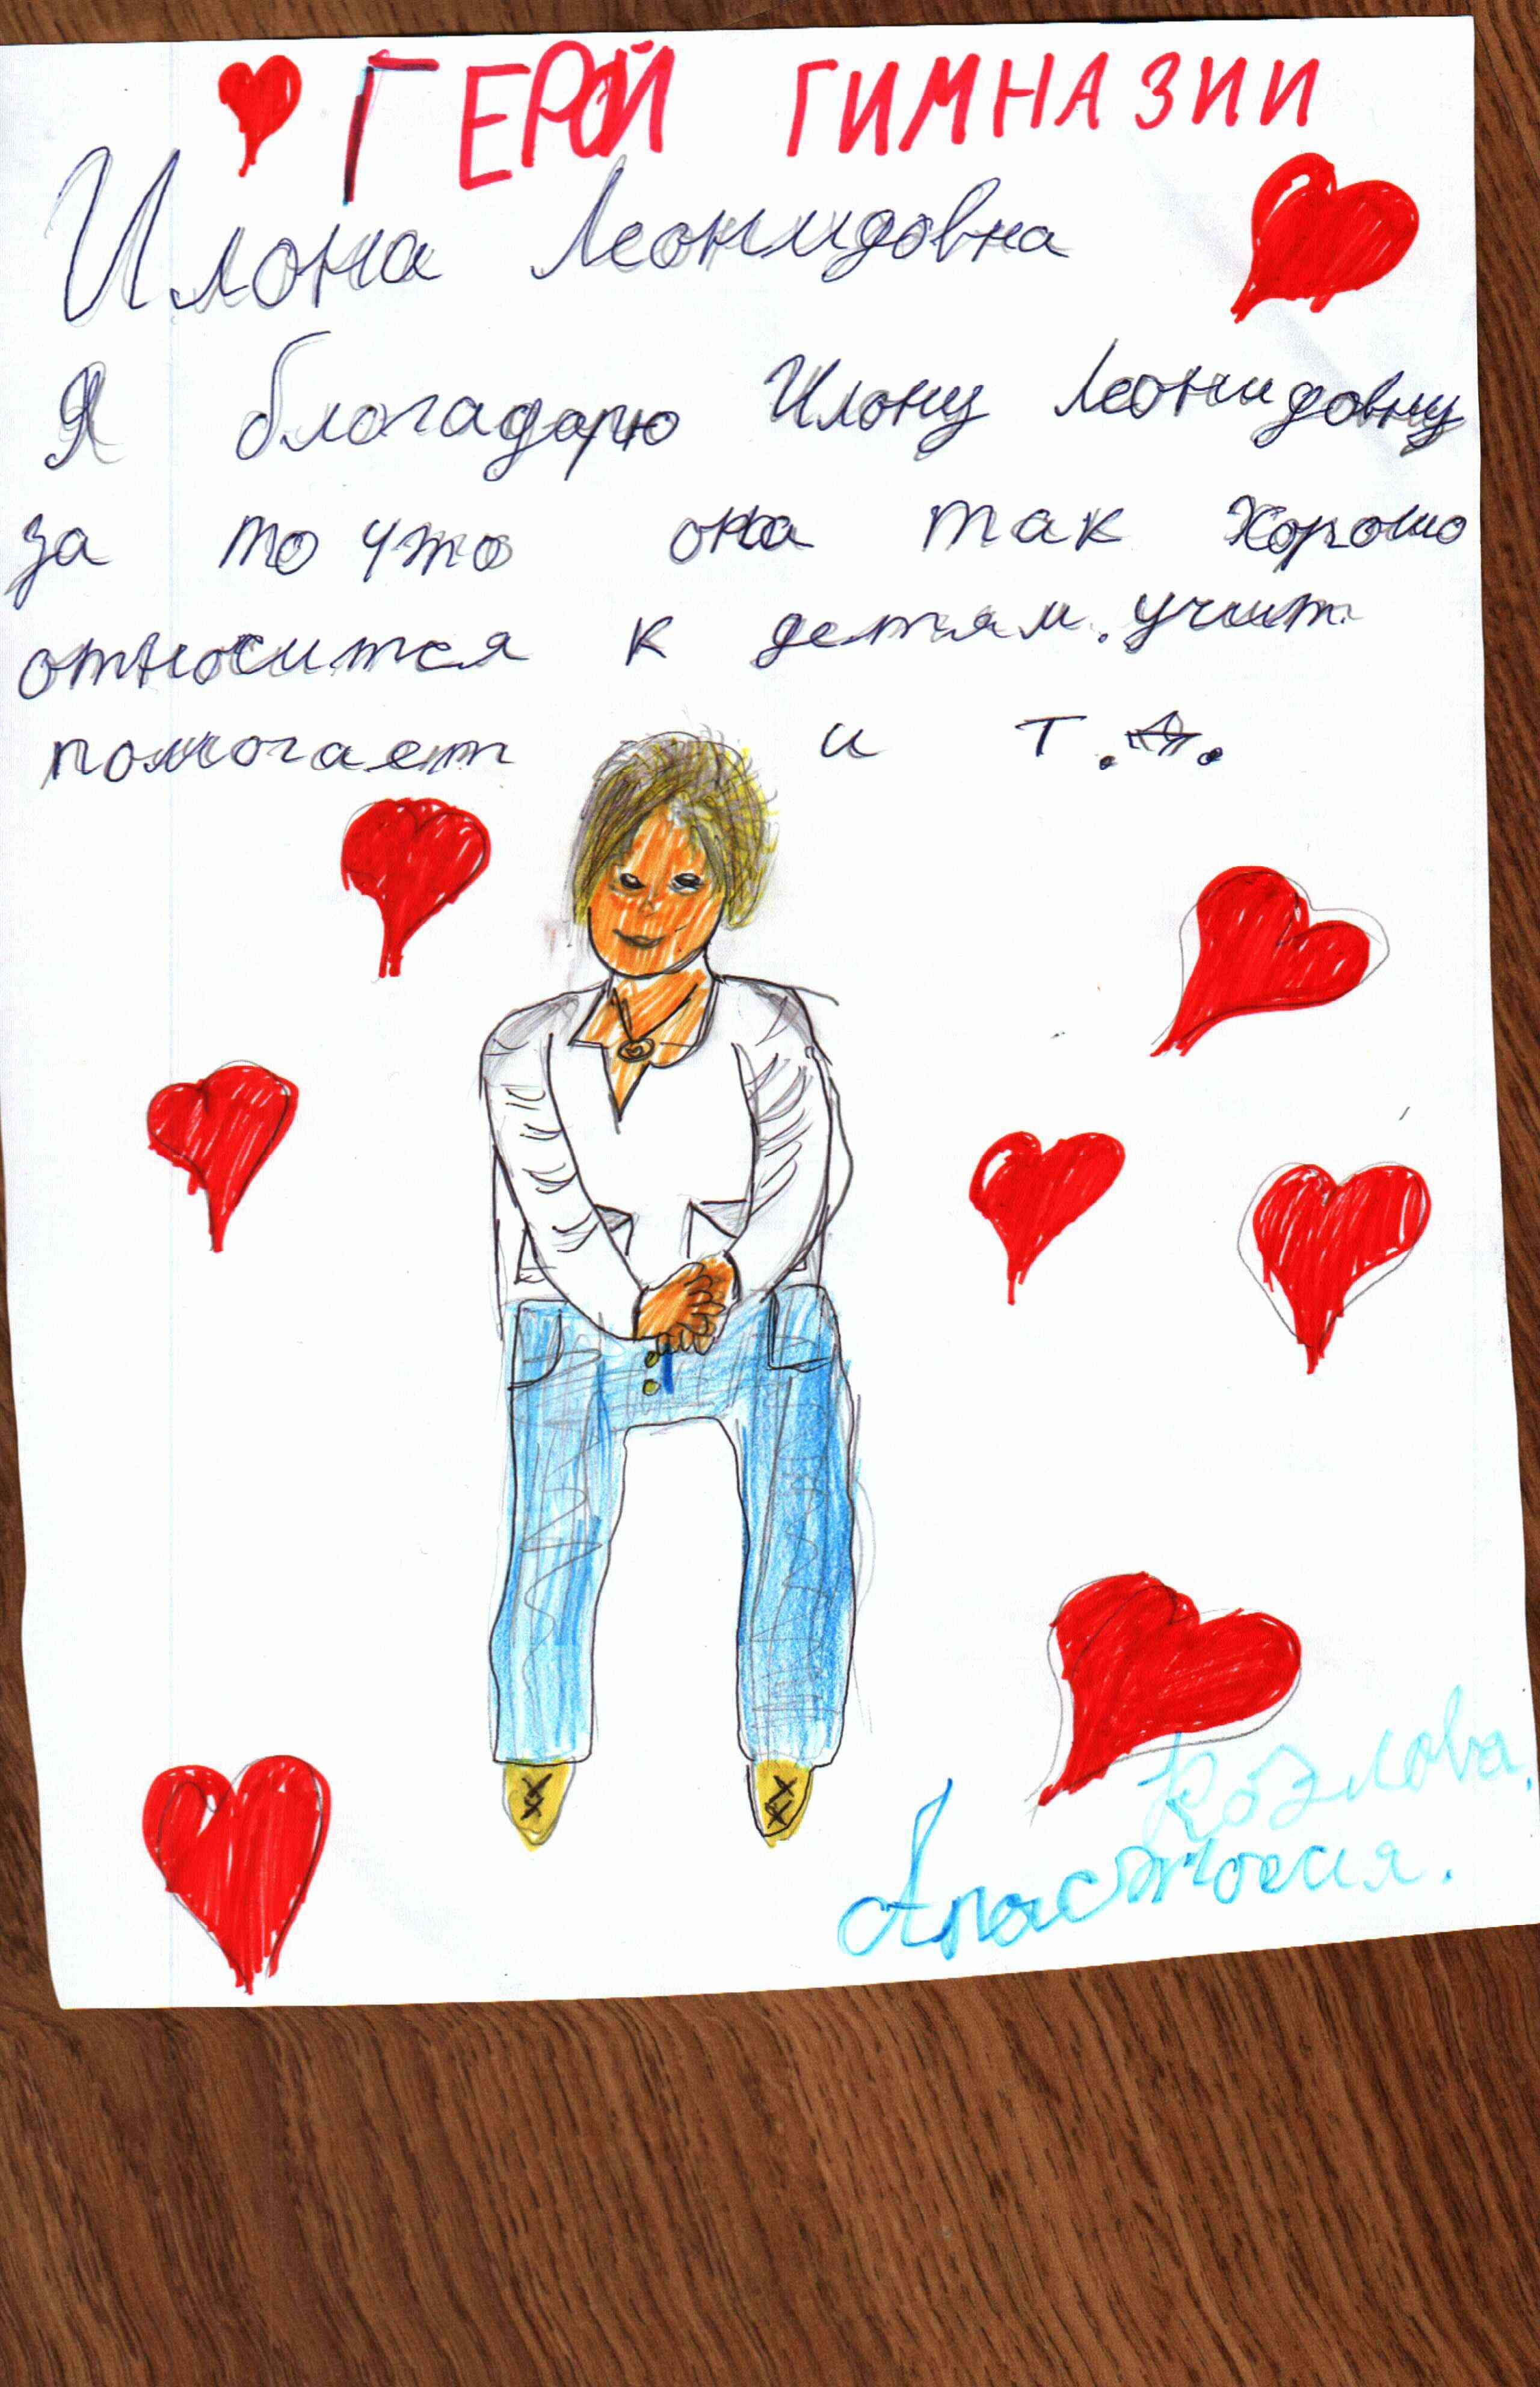 ГЕРОЙ ГИМНАЗИИ
Илона Леонидовна
Я благадарю Илону Леонидовну
за то что она так хорошо
относится к детям. учит
помогает и т.д.
Козлова.
Анастасия.